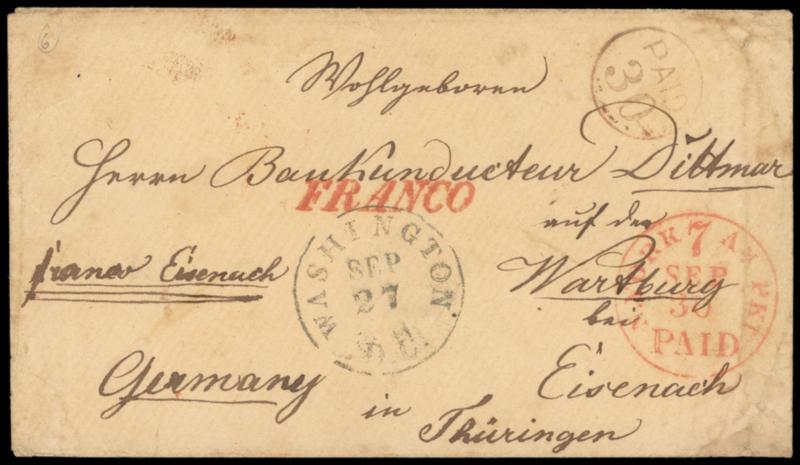 6
PAID
30
Wohlgeboren
Herrn Baukunducteur Dittmar
FRANCO
auf der
franco Eisenach
Wartburg
bei
WASHINGTON
SEP
27
D.C.
YORK AM PKT
7
SEP
30
PAID
Germany
Eisenach
in
Thüringen